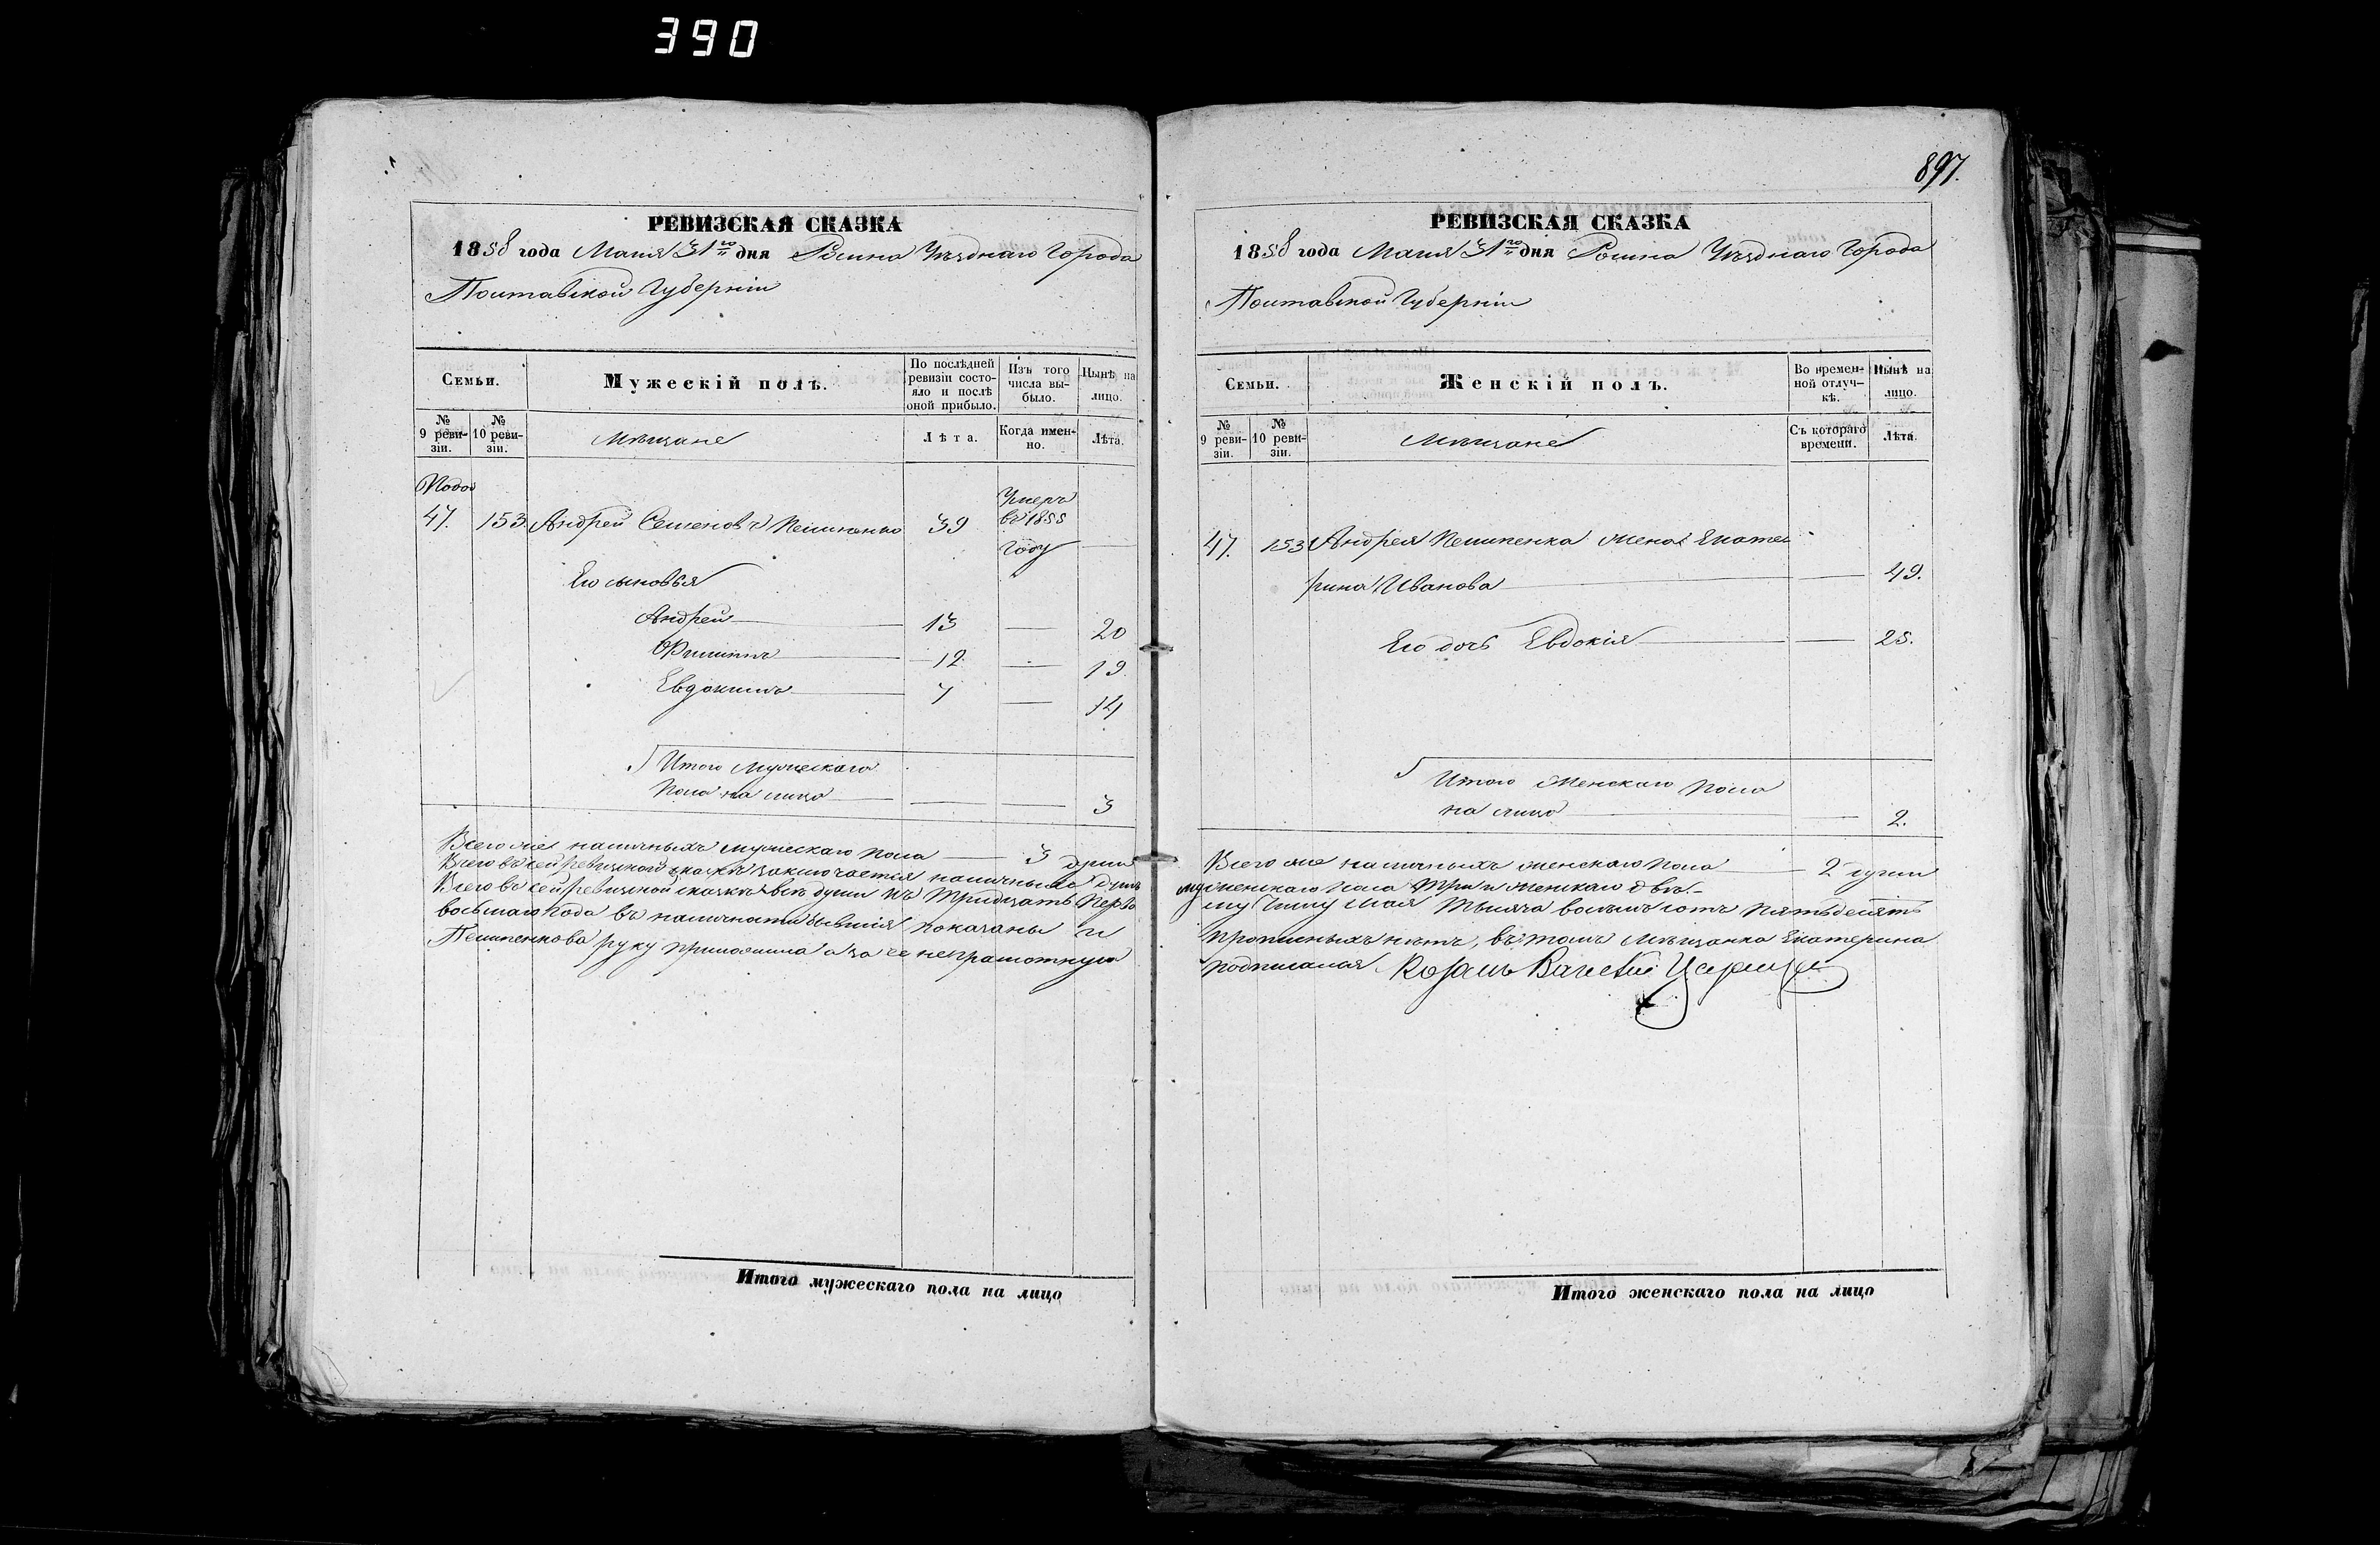 390
РЕВИЗСКАЯ СКАЗКА
1858 года Маия 31го дня Ромна Уѣзднаго Города
Полтавской Губерніи
Семьи.
Мужескій полъ.
По послѣдней ревизіи состояло и послѣ оной прибыло.
Изъ того числа выбыло.
Нынѣ на лицо.
№ 9 ревизіи.
№ 10 ревизіи.
Мѣщане
Лѣта.
Когда именно.
Лѣта.
47. 153 Андрей Семеновъ 39 Умеръ въ 1855 году
Его сыновья
Андрей 13 — 20
Филиппъ 12 — 19
Евдокимъ 7 — 14
Итого мужескаго
пола на лицо 3
Всего же наличныхъ мужескаго пола — 3 души
Всего въ сей ревизской сказкѣ заключается наличныхъ душъ
Всего въ сей ревизской сказкѣ всѣ души къ тридцать перво
восьмаго года въ наличности бывшія показаны и
руку приложила а за ее неграмотную
897.
РЕВИЗСКАЯ СКАЗКА
1858 года Маия 31го дня Ромна Уѣзднаго Города
Полтавской Губерніи
Семьи.
Женскій полъ.
Во временной отлучкѣ.
Нынѣ на лицо.
№ 9 ревизіи.
№ 10 ревизіи.
Мѣщане
Съ котораго времени.
Лѣта.
47. 153 Андрея жена Екате
рина Иванова — 49.
Его дочь Евдокія — 25.
Итого женскаго пола
на лицо — 2.
Всего же наличныхъ женскаго пола — 2 души
мужескаго пола три и женскаго двѣ.
му числу мая тысяча восемь сотъ пятьдесятъ
прописныхъ нѣтъ, въ томъ мѣщанка Екатерина
подписался
Итого мужескаго пола на лицо
Итого женскаго пола на лицо